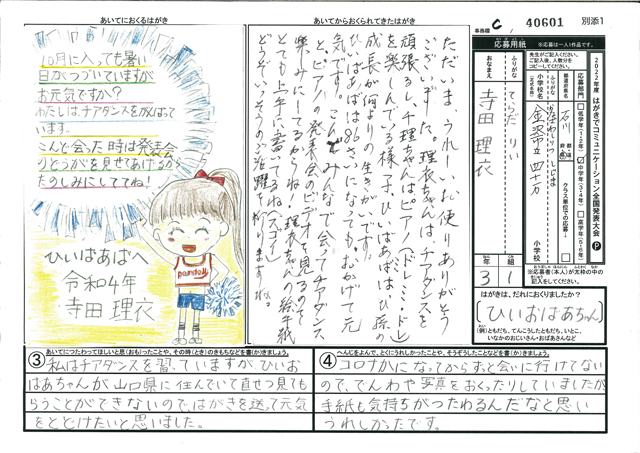 あいてにおくるはがき
10月に入っても暑い
日がつづいていますが
お元気ですか?
わたしは、チアダンスをがんばって
います。
こんど会った時は発表会
のどうがを見せてあげるから
たのしみにしててね!
ひいばあばへ
令和4年
寺田 理衣
あいてからおくられてきたはがき
ただいま うれしいお便りありがとう
ございました。理衣ちゃんは、チアダンスを
頑張るし、千理ちゃんはピアノ(ドレミ・ミ・ド)
を楽しんでいる様す、ひいばあばは ひ孫の
成長が何よりの生きがいです!
ひいばあばは86さいになっても、おかげで元
気です。こんどみんなで会い、チアダンス
とピアノの発表会のビデオを見るのを
楽しみにしてるからね! 理衣ちゃんの絵手紙
とても上手に書いてるね(スゴイ)
事務欄
C
40601
別添1
応募用紙
※応募は一人1作品です。
先生がご記入ください。
ご記入後、人数分を
コピーしてください。
ふりがな
おなまえ
てらだ りい
寺田 理衣
都道府県名
石川
小学校名
(正式名称)
金沢市立 四十万
小学校
クラス単位での応募
年
3
組
1
応募部門
低学年(1・2年)
中学年(3・4年)
高学年(5・6年)
2022年度 はがきでコミュニケーション全国発表大会 P
※応募者(本人)が太枠の中の
記入をしてください。
はがきは、だれにおくりましたか?
(ひいおばあちゃん)
(例)ともだち、てんこうしたともだち、いとこ、
いなかのおじいさん・おばあさんなど
③ あいてにつたわってほしいと思(おも)ったことや、その時(とき)のきもちなどを書(か)きましょう。
私はチアダンスを習っていますがひいお
ばあちゃんが山口県に住んでいて直せつ見ても
らうことができないのではがきを送って元気
をとどけたいと思いました。
④ へんじをよんで、とくにうれしかったことや、そうぞうしたことなどを書(か)きましょう。
コロナかになってからずっと会いに行けてない
ので、でんわや写真をおくったりしていましたが
手紙も気持ちがつたわるんだなと思い
うれしかったです。